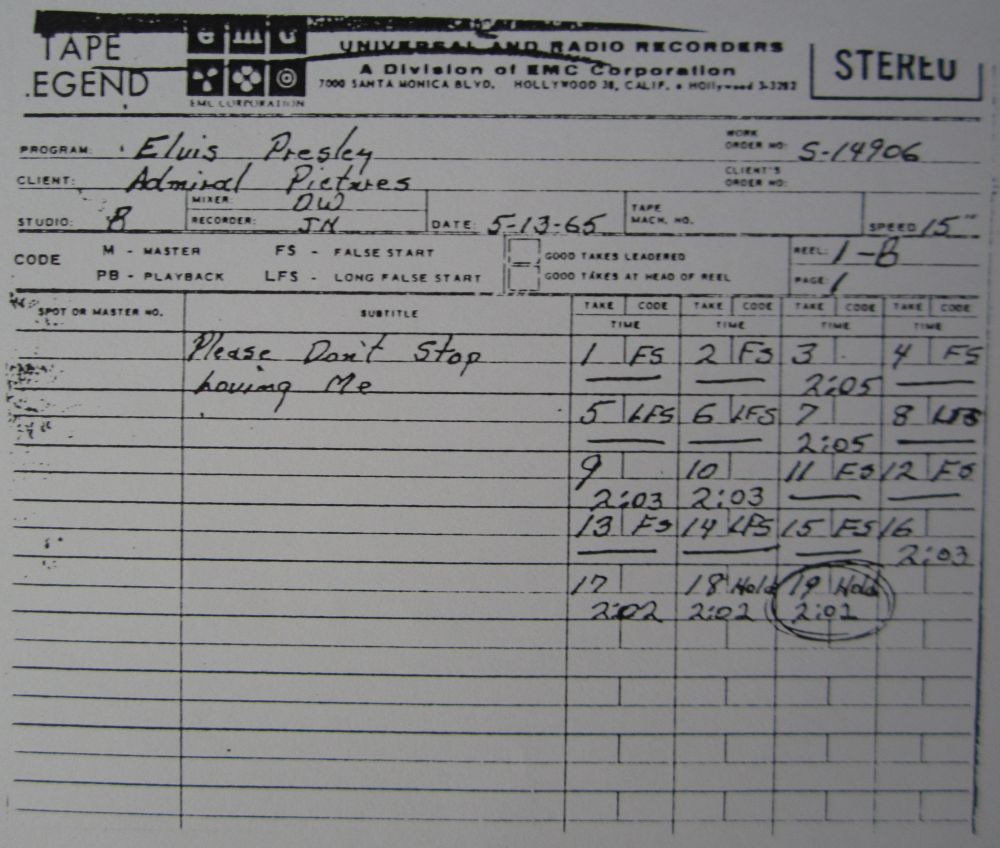 TAPE
.EGEND
emc
EMC CORPORATION
UNIVERSAL AND RADIO RECORDERS
A Division of EMC Corporation
7000 SANTA MONICA BLVD. HOLLYWOOD 38, CALIF. • HOllywood 3-3282
STEREO
PROGRAM: Elvis Presley
WORK ORDER NO: S-14906
CLIENT: Admiral Pictures
CLIENT'S ORDER NO:
STUDIO: B
MIXER: DW
RECORDER: JN
DATE: 5-13-65
TAPE MACH. NO.
SPEED 15"
CODE
M - MASTER FS - FALSE START
PB - PLAYBACK LFS - LONG FALSE START
GOOD TAKES LEADERED
GOOD TAKES AT HEAD OF REEL
REEL: 1-B
PAGE: 1
SPOT OR MASTER NO. SUBTITLE TAKE CODE TAKE CODE TAKE CODE TAKE CODE
TIME TIME TIME TIME
Please Don't Stop 1 FS 2 FS 3 4 FS
Loving Me 2:05
5 LFS 6 LFS 7 8 LFS
2:05
9 10 11 FS 12 FS
2:03 2:03
13 FS 14 LFS 15 FS 16
2:03
17 18 Hold 19 Hold
2:02 2:02 2:02